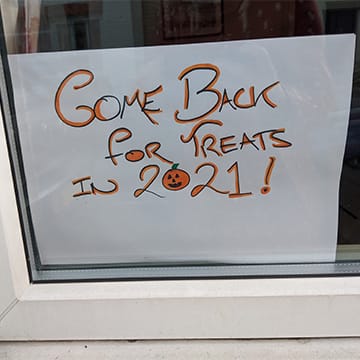 COME BACK
FOR TREATS
IN 2021!